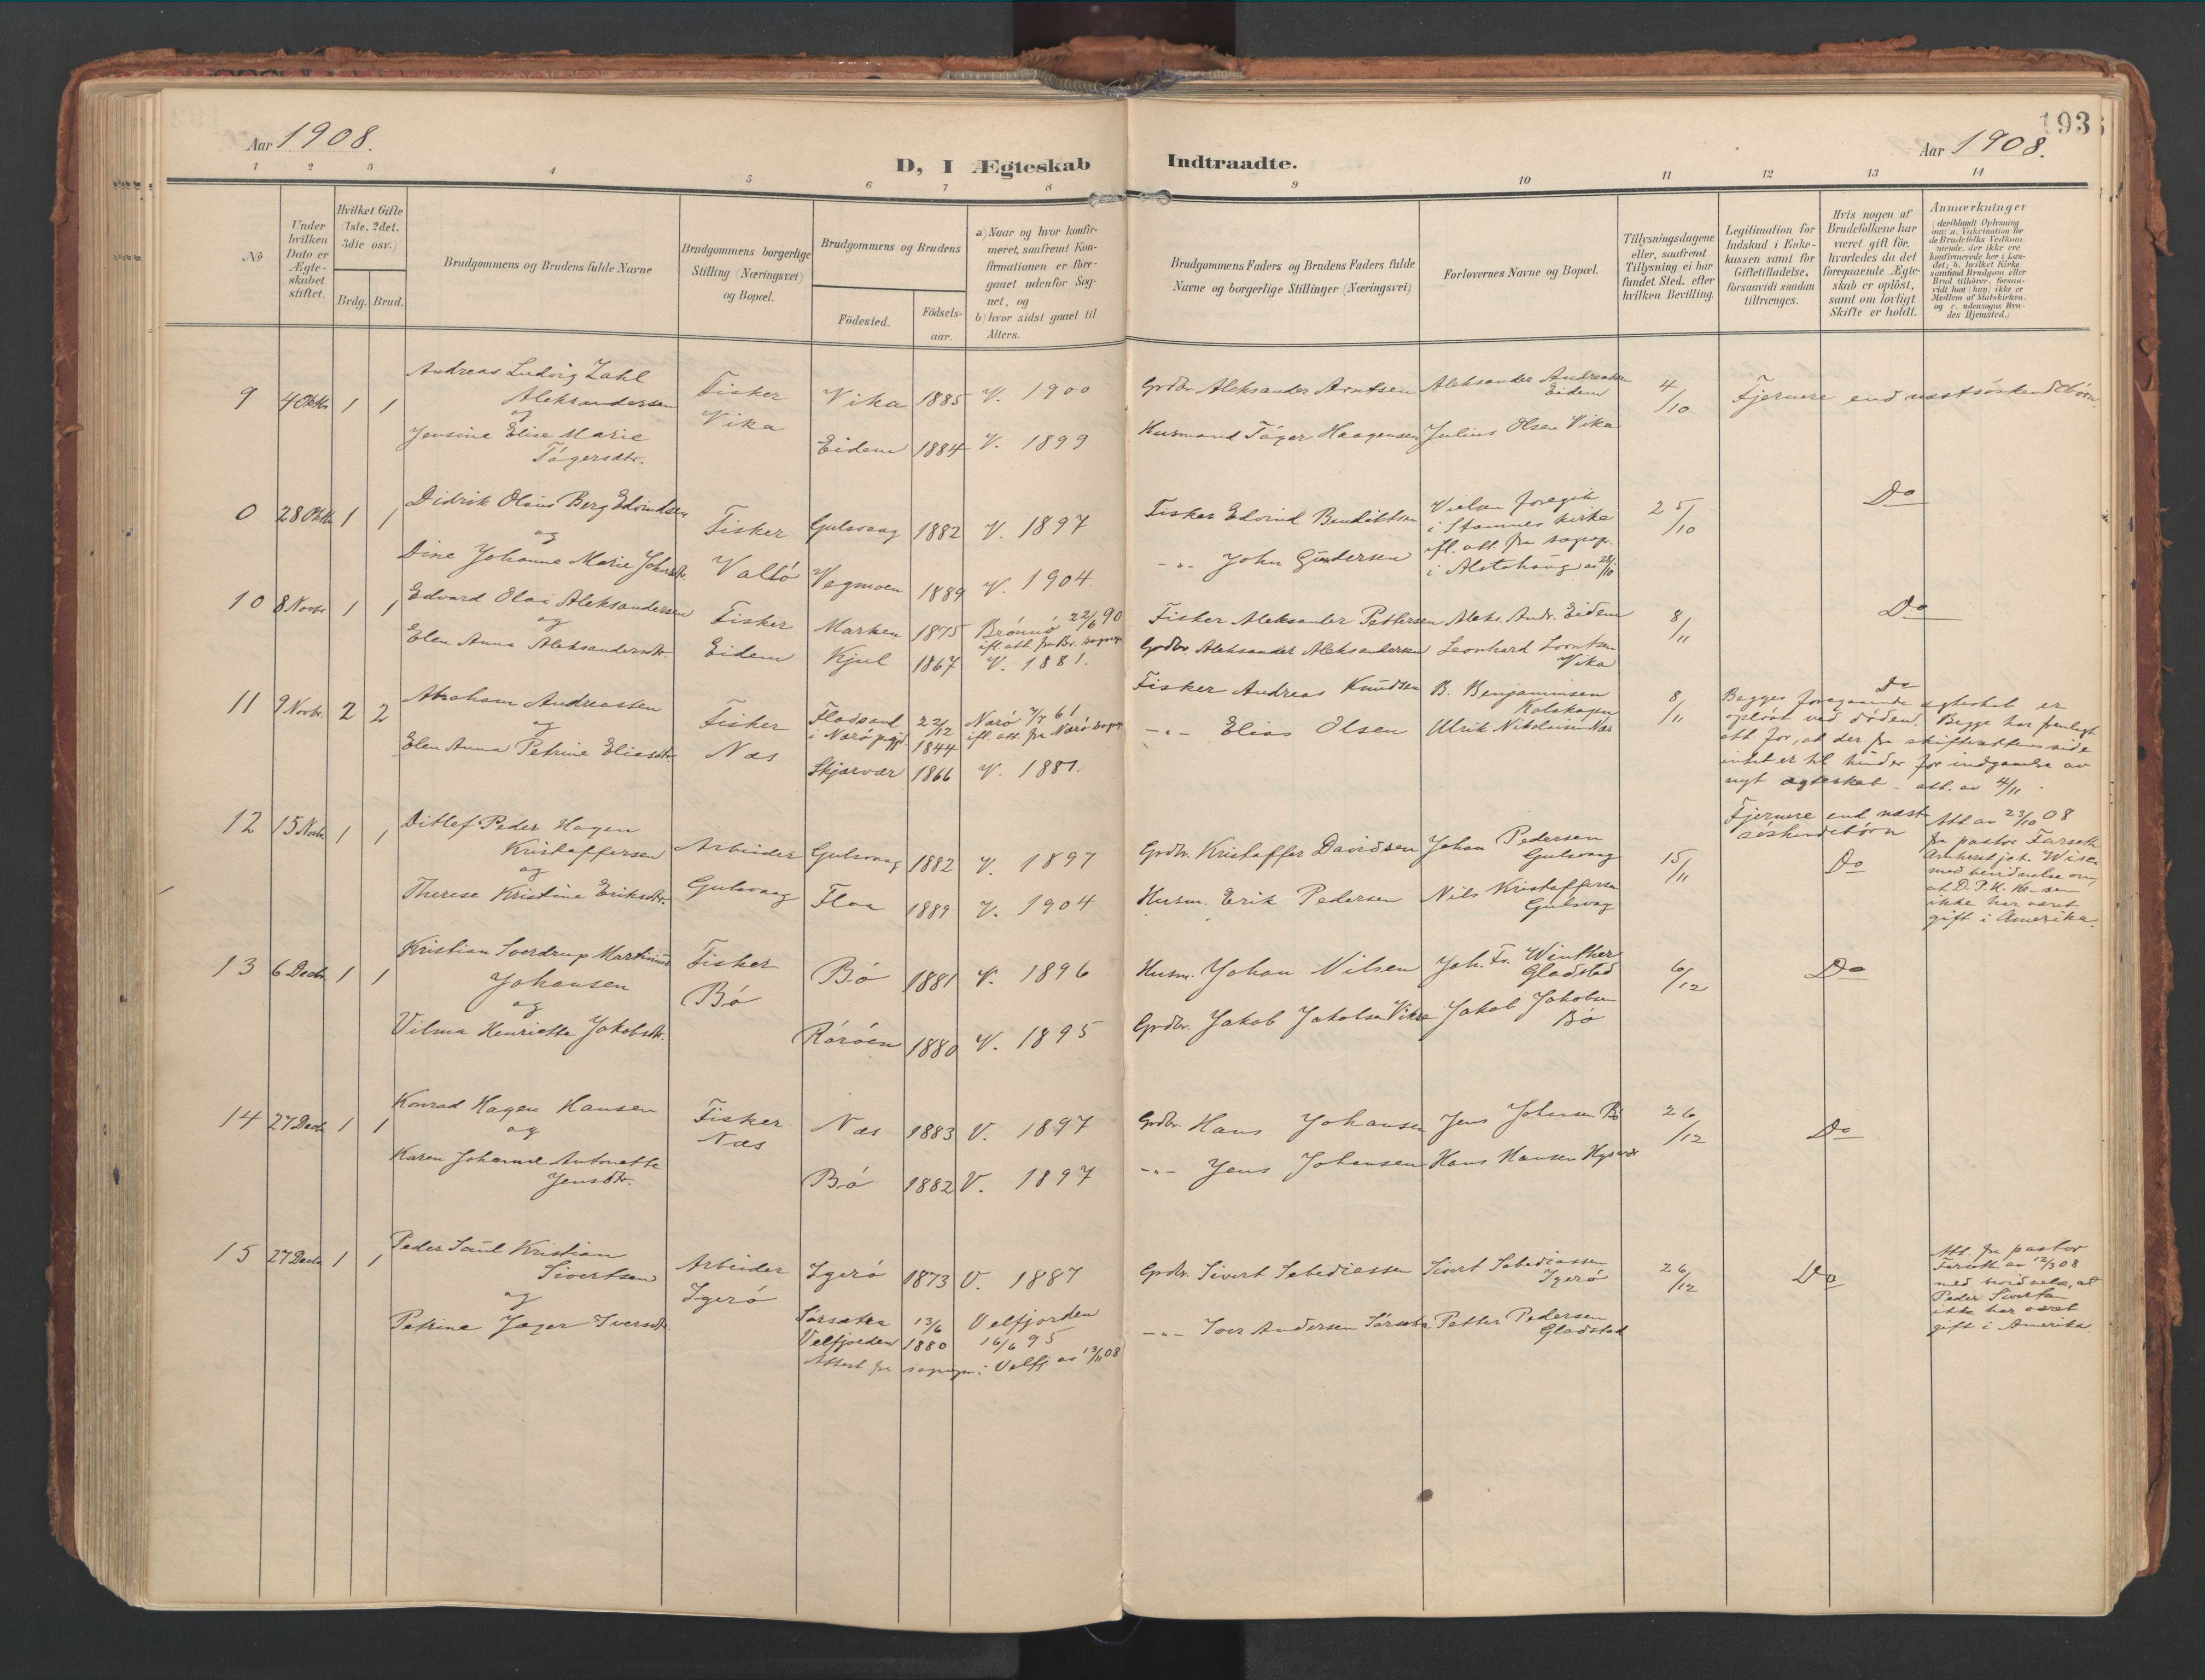 193
Aar 1908.
D, I Ægteskab Indtraadte.
Aar 1908.
1 2 3 4 5 6 7 8 9 10 11 12 13 14
No
Under hvilken Dato er Ægteskabet stiftet.
Hvilket Gifte (1ste, 2det, 3die osv.)
Brdg. Brud.
Brudgommens og Brudens fulde Navne
Brudgommens borgerlige Stilling (Næringsvei) og Bopæl.
Brudgommens og Brudens
Födested.
Födsels-aar.
a) Naar og hvor konfirmeret, saafremt Konfirmationen er foregaaet udenfor Sognet, og
b) hvor sidst gaaet til Alters.
Brudgommens Faders og Brudens Faders fulde Navne og borgerlige Stillinger (Næringsvei)
Forlovernes Navne og Bopæl.
Tillysningsdagene eller, saafremt Tillysning ei har fundet Sted, efter hvilken Bevilling.
Legitimation for Indskud i Enkekassen samt for Giftetilladelse, forsaavidt saadan tiltrænges.
Hvis nogen af Brudefolkene har været gift för, hvorledes da det foregaaende Ægteskab er oplöst, samt om lovligt Skifte er holdt.
Anmærkninger
(deriblandt Oplysning om: a. Vakcination for de Brudefolks Vedkommende, der ikke ere konfirmerede her i Landet; b. hvilket Kirkesamfund Brudgom eller Brud tilhörer, forsaavidt han (hun) ikke er Medlem af Statskirken, og c. udensogns Brudes Hjemsted.)
9 4 Oktbr 1 1 Andreas Ludvig Zahl Fisker Vika 1885 V. 1900 Grdbr. Aleksander Arntsen Aleksander Andreassen 4/10 Fjernere end næstsöskendebörn
Aleksandersen Vika Eidem
og
Jensine Elise Marie Eidem 1884 V. 1899 Husmand Töger Haagensen Julius Olsen Vika
Tögersdtr.
0 28 Oktbr 1 1 Didrik Olaus Berg Edvindsen Fisker Gulsvaag 1882 V. 1897 Fisker Edvind Bendiktsen Vielsen foregik 25/10 Do
og i Stamnes kirke
Dine Johanne Marie Johnsdtr. Vallö Vegmoen 1889 V. 1904. -"- John Gundersen ifl. att. fra sognepr.
i Alstahaug av 28/10
10 8 Novbr 1 1 Edvard Olai Aleksandersen Fisker Marken 1875 Brönnö 22/6 90 Fisker Aleksander Pettersen Aleks. Andr. Eidem 8/11 Do
og ifl. att. fra Br. sognepr
Elen Anna Aleksandersdtr. Eidem Kjul 1867 V. 1881. Grdbr. Aleksander Aleksandersen Leonhard Lorntsen
Vika
11 9 Novbr. 2 2 Abraham Andreassen Fisker Flosand 22/12 Nærö 7/7 61 Fisker Andreas Knudsen B. Benjaminsen 8/11 Do
og i Nærö prgj. 1844 ifl. att. fra Nærö sognepr Kalskagen
Elen Anna Petrine Eliasdtr. Næs Skjærvær 1866 V. 1881. -"- Elias Olsen Ulrik Nikolaisen Næs
Begges foregaaende ægteskab er
oplöst ved döden. Begge har fremlagt
att. for, at der fra skifterettens side
intet er til hinder for indgaaelse av
nyt ægteskab. att. av 4/11.
12 15 Novbr 1 1 Ditlef Peder Hagen Arbeider Gulsvaag 1882 V. 1897 Grdbr. Kristoffer Davidsen Johan Pedersen 15/11 Fjernere end næst
Kristoffersen Gulsvaag söskendebörn
og Do
Therese Kristine Eriksdtr. Gulsvaag Floa 1889 V. 1904 Husm. Erik Pedersen Nils Kristoffersen
Gulsvag
Att. av 23/10 08
fra pastor Farseth
Amherst jct. Wisc
med bevidnelse om,
at D. P. H. K-sen
ikke har været
gift i Amerika.
13 6 Decbr 1 1 Kristian Sverdrup Martinius Fisker Bö 1881 V. 1896 Husm. Johan Nilsen Joh. Fr. Winther 6/12 Do
Johansen Bö Gladstad
og
Vilma Henriette Jakobsdtr. Röröen 1880 V. 1895 Grdbr. Jakob Jakobsen Vikre Jakob Jakobsen
Bö
14 27 Decbr 1 1 Konrad Hagen Hansen Fisker Næs 1883 V. 1897 Grdbr. Hans Johansen Jens Johansen Bö 26/12 Do
og Næs
Karen Johanne Antonette Bö 1882 V. 1897 -"- Jens Johansen Hans Hansen
Jensdtr.
15 27 Decbr 1 1 Peder Saul Kristian Arbeider Igerö 1873 V. 1887 Grdbr. Sivert Sebediassen Sivert Sebediassen 26/12 Do
Sivertsen Igerö Igerö
og Sörsætra 13/6 Velfjorden
Petrine Jæger Iversdtr. Velfjorden 1880 16/6 95 -"- Iver Andersen Sörsætra Petter Pedersen
Gladstad
Attest fra sognepr. i Velfj. av 13/11 08
Att. fra pastor
Farseth av 12/3 08
med bevidnelse, at
Peder Sivertsen
ikke har været
gift i Amerika.